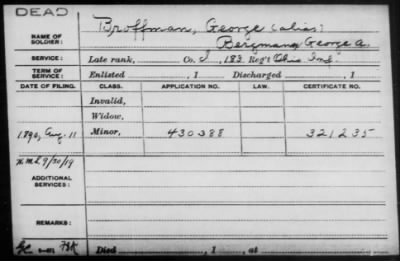 DEAD
NAME OF SOLDIER: Broffman, George (alias)
Bergman, George A.
SERVICE: Late rank, Co. I, 183 Reg't Ohio Inf.
TERM OF SERVICE: Enlisted , 1 Discharged , 1
DATE OF FILING. CLASS. APPLICATION NO. LAW. CERTIFICATE NO.
Invalid,
Widow,
1890, Aug. 11 Minor, 430388 321235
9/20/19
ADDITIONAL SERVICES:
REMARKS:
Died , 1 , at